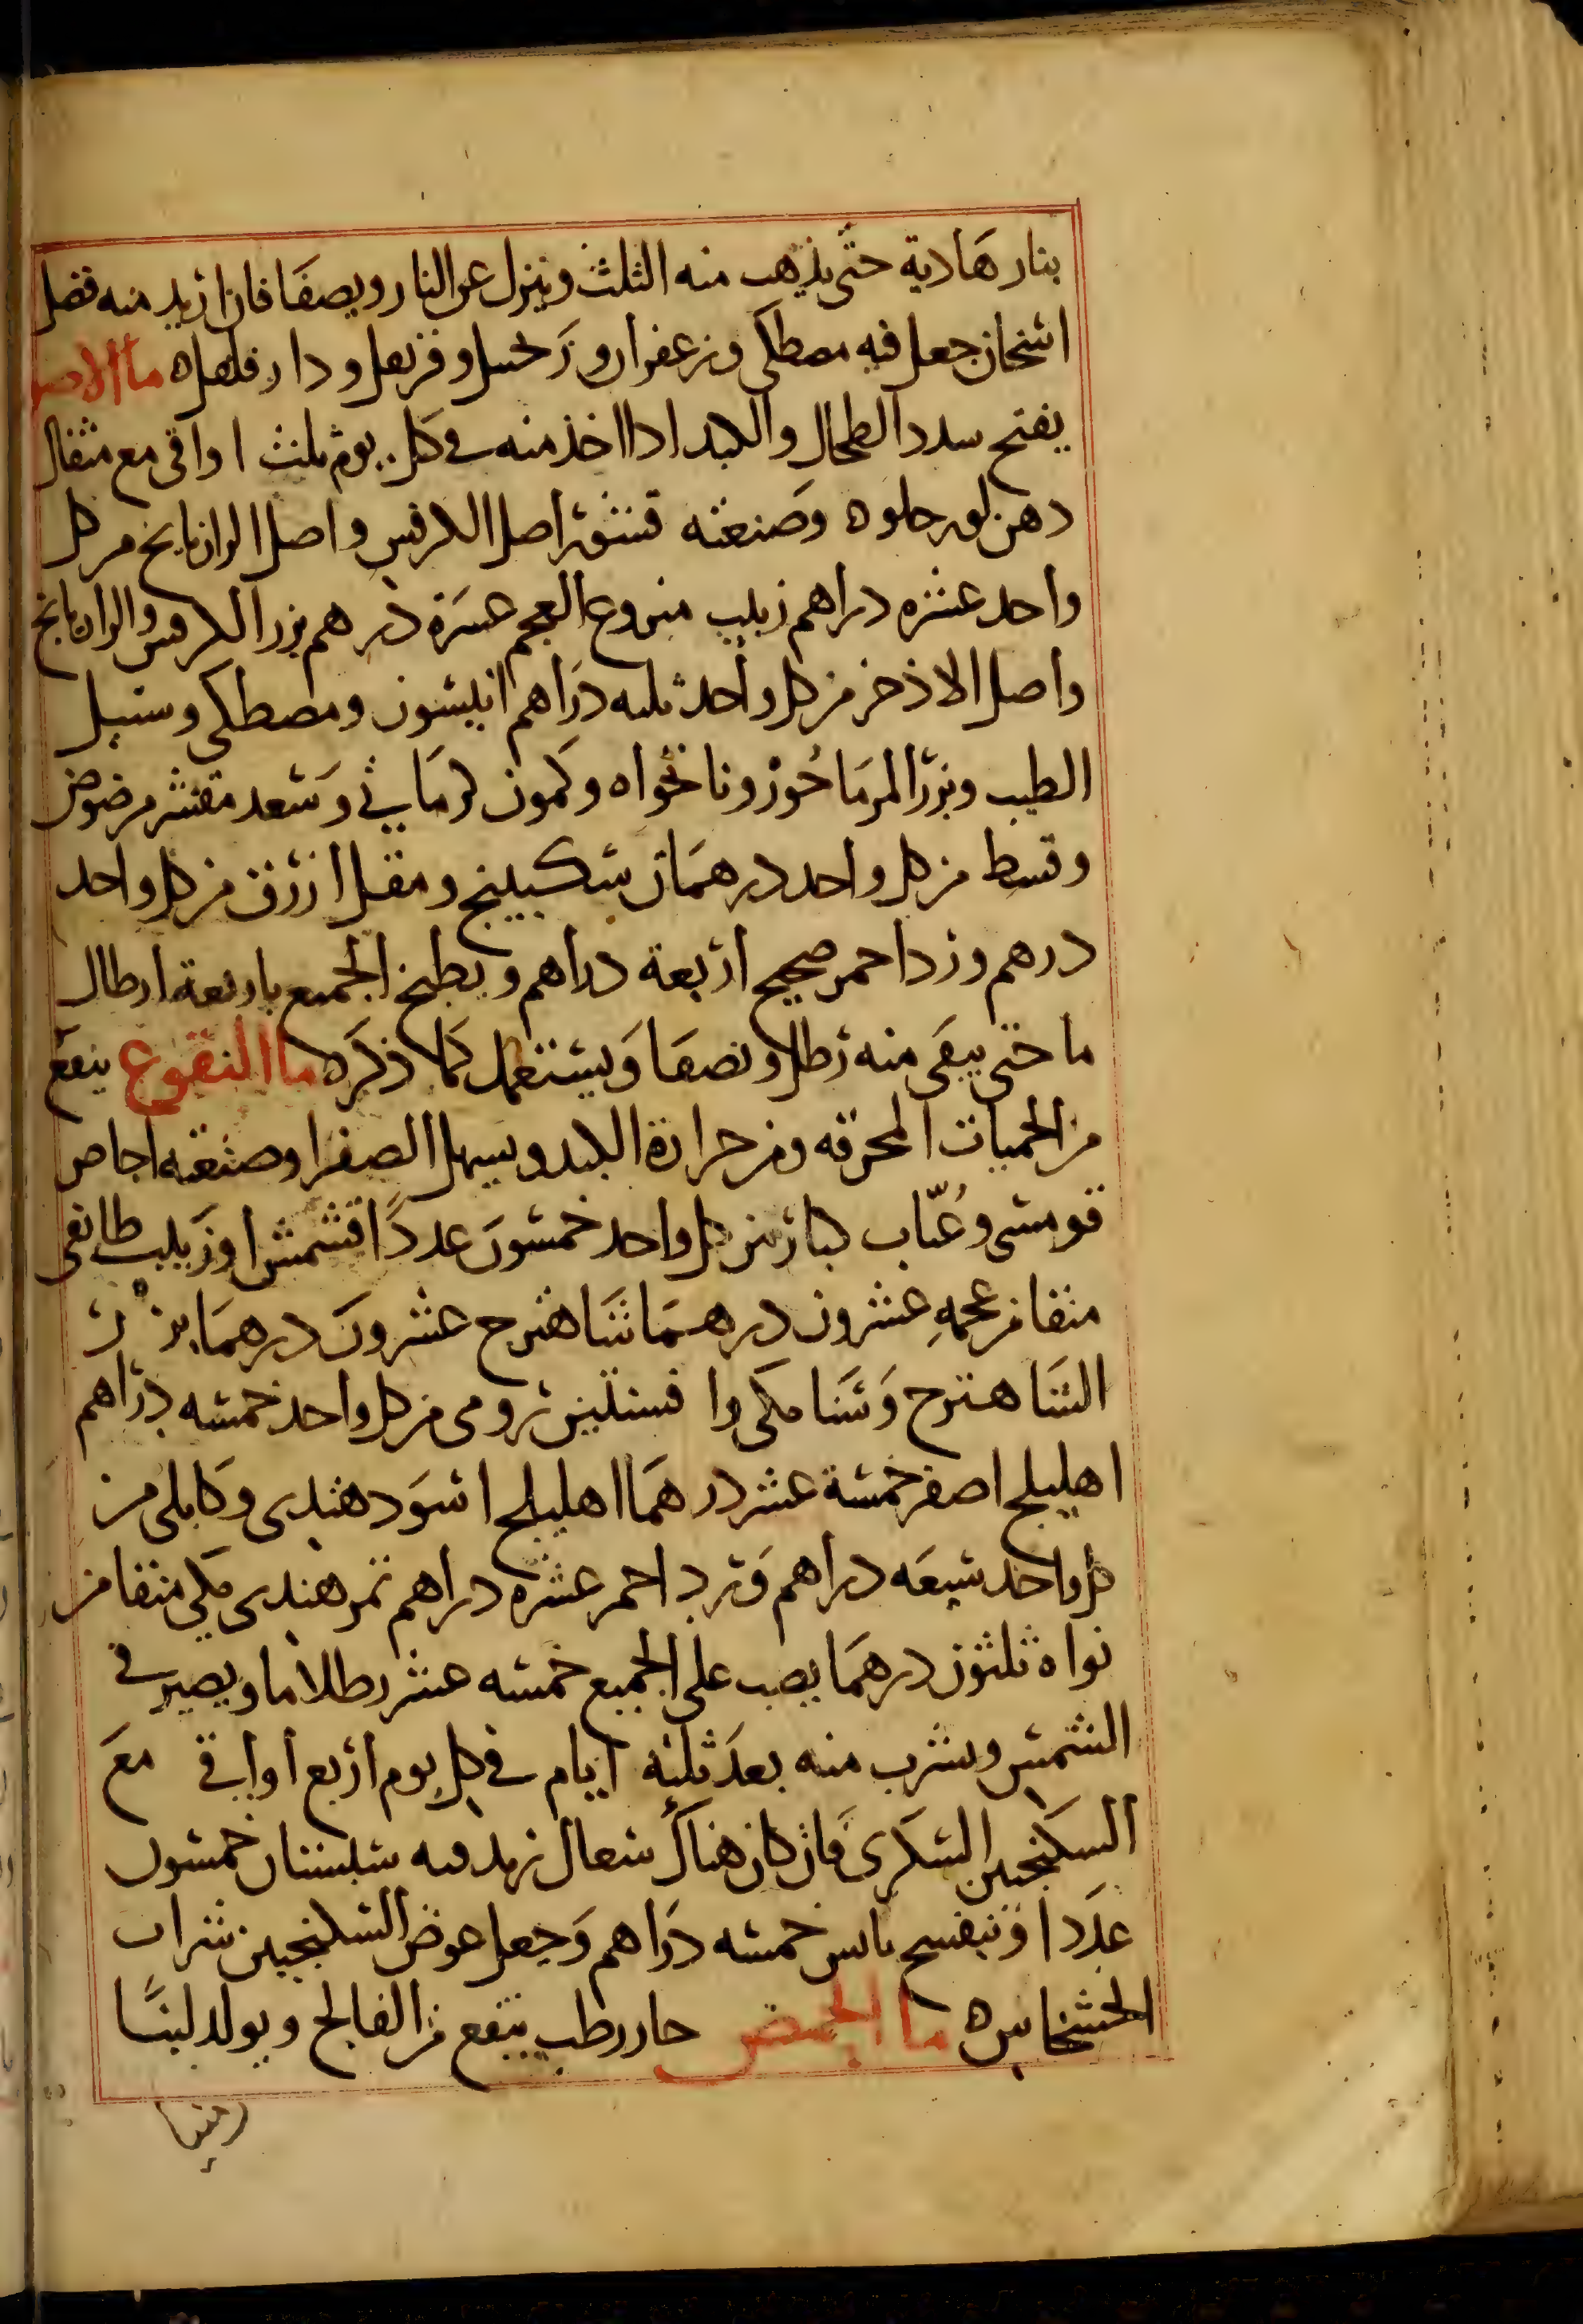 بنار هادية حتى يذهب منه الثلث وينزل عن النار ويصفا فان اريد منه فضل
اسخان جعل فيه مصطكى وزعفران وزنجبيل وقرنفل ودارفلفل ه ماء الاصول
يفتح سدد الطحال والكبد اذا اخذ منه في كل يوم ثلث اواقى مع مثقال
دهن لوز حلو ه وصنعته قشور اصل الكرفس واصل الرازيانج من كل
واحد عشره دراهم زبيب منزوع العجم عشرة درهم بزر الكرفس والرازيانج
واصل الاذخر من كل واحد ثلثه دراهم انيسون ومصطكى وسنبل
الطيب وبزر المرماحوز ونانخواه وكمون كرماني وسعد مقشر مرضوض
وقسط من كل واحد درهمان سكبينج ومقل ازرق من كل واحد
درهم ورد احمر صحيح اربعة دراهم ويطبخ الجميع باربعة ارطال
ما حتى يبقى منه رطلا ونصفا ويستعمل كما ذكر ه ما النقوع ينفع
من الحميات المحرقه ومن حرارة الكبد ويسهل الصفرا وصنعته اجاص
قومسى وعناب كبار من كل واحد خمسون عددا قشمش او زبيب طايفى
منقا من عجمه عشرون درهما شاهترج عشرون درهما بزر
الشاهترج وسنا مكى وافسنتين رومى من كل واحد خمسه دراهم
اهليلج اصفر خمسة عشر درهما اهليلج اسود هندى وكابلى من
كل واحد سبعه دراهم ورد احمر عشره دراهم تمر هندى مكى منقا من
نواه ثلثون درهما يصب على الجميع خمسه عشر رطلا ما ويصير في
الشمس ويشرب منه بعد ثلثه ايام في كل يوم اربع اواقي مع
السكنجبين السكرى فان كان هناك سعال زيد فيه سبستان خمسون
عددا وبنفسج يابس خمسه دراهم وجعل عوض السكنجبين شراب
الخشخاش ه ما الحمص حار رطب ينفع من الفالج ويولد لبنا